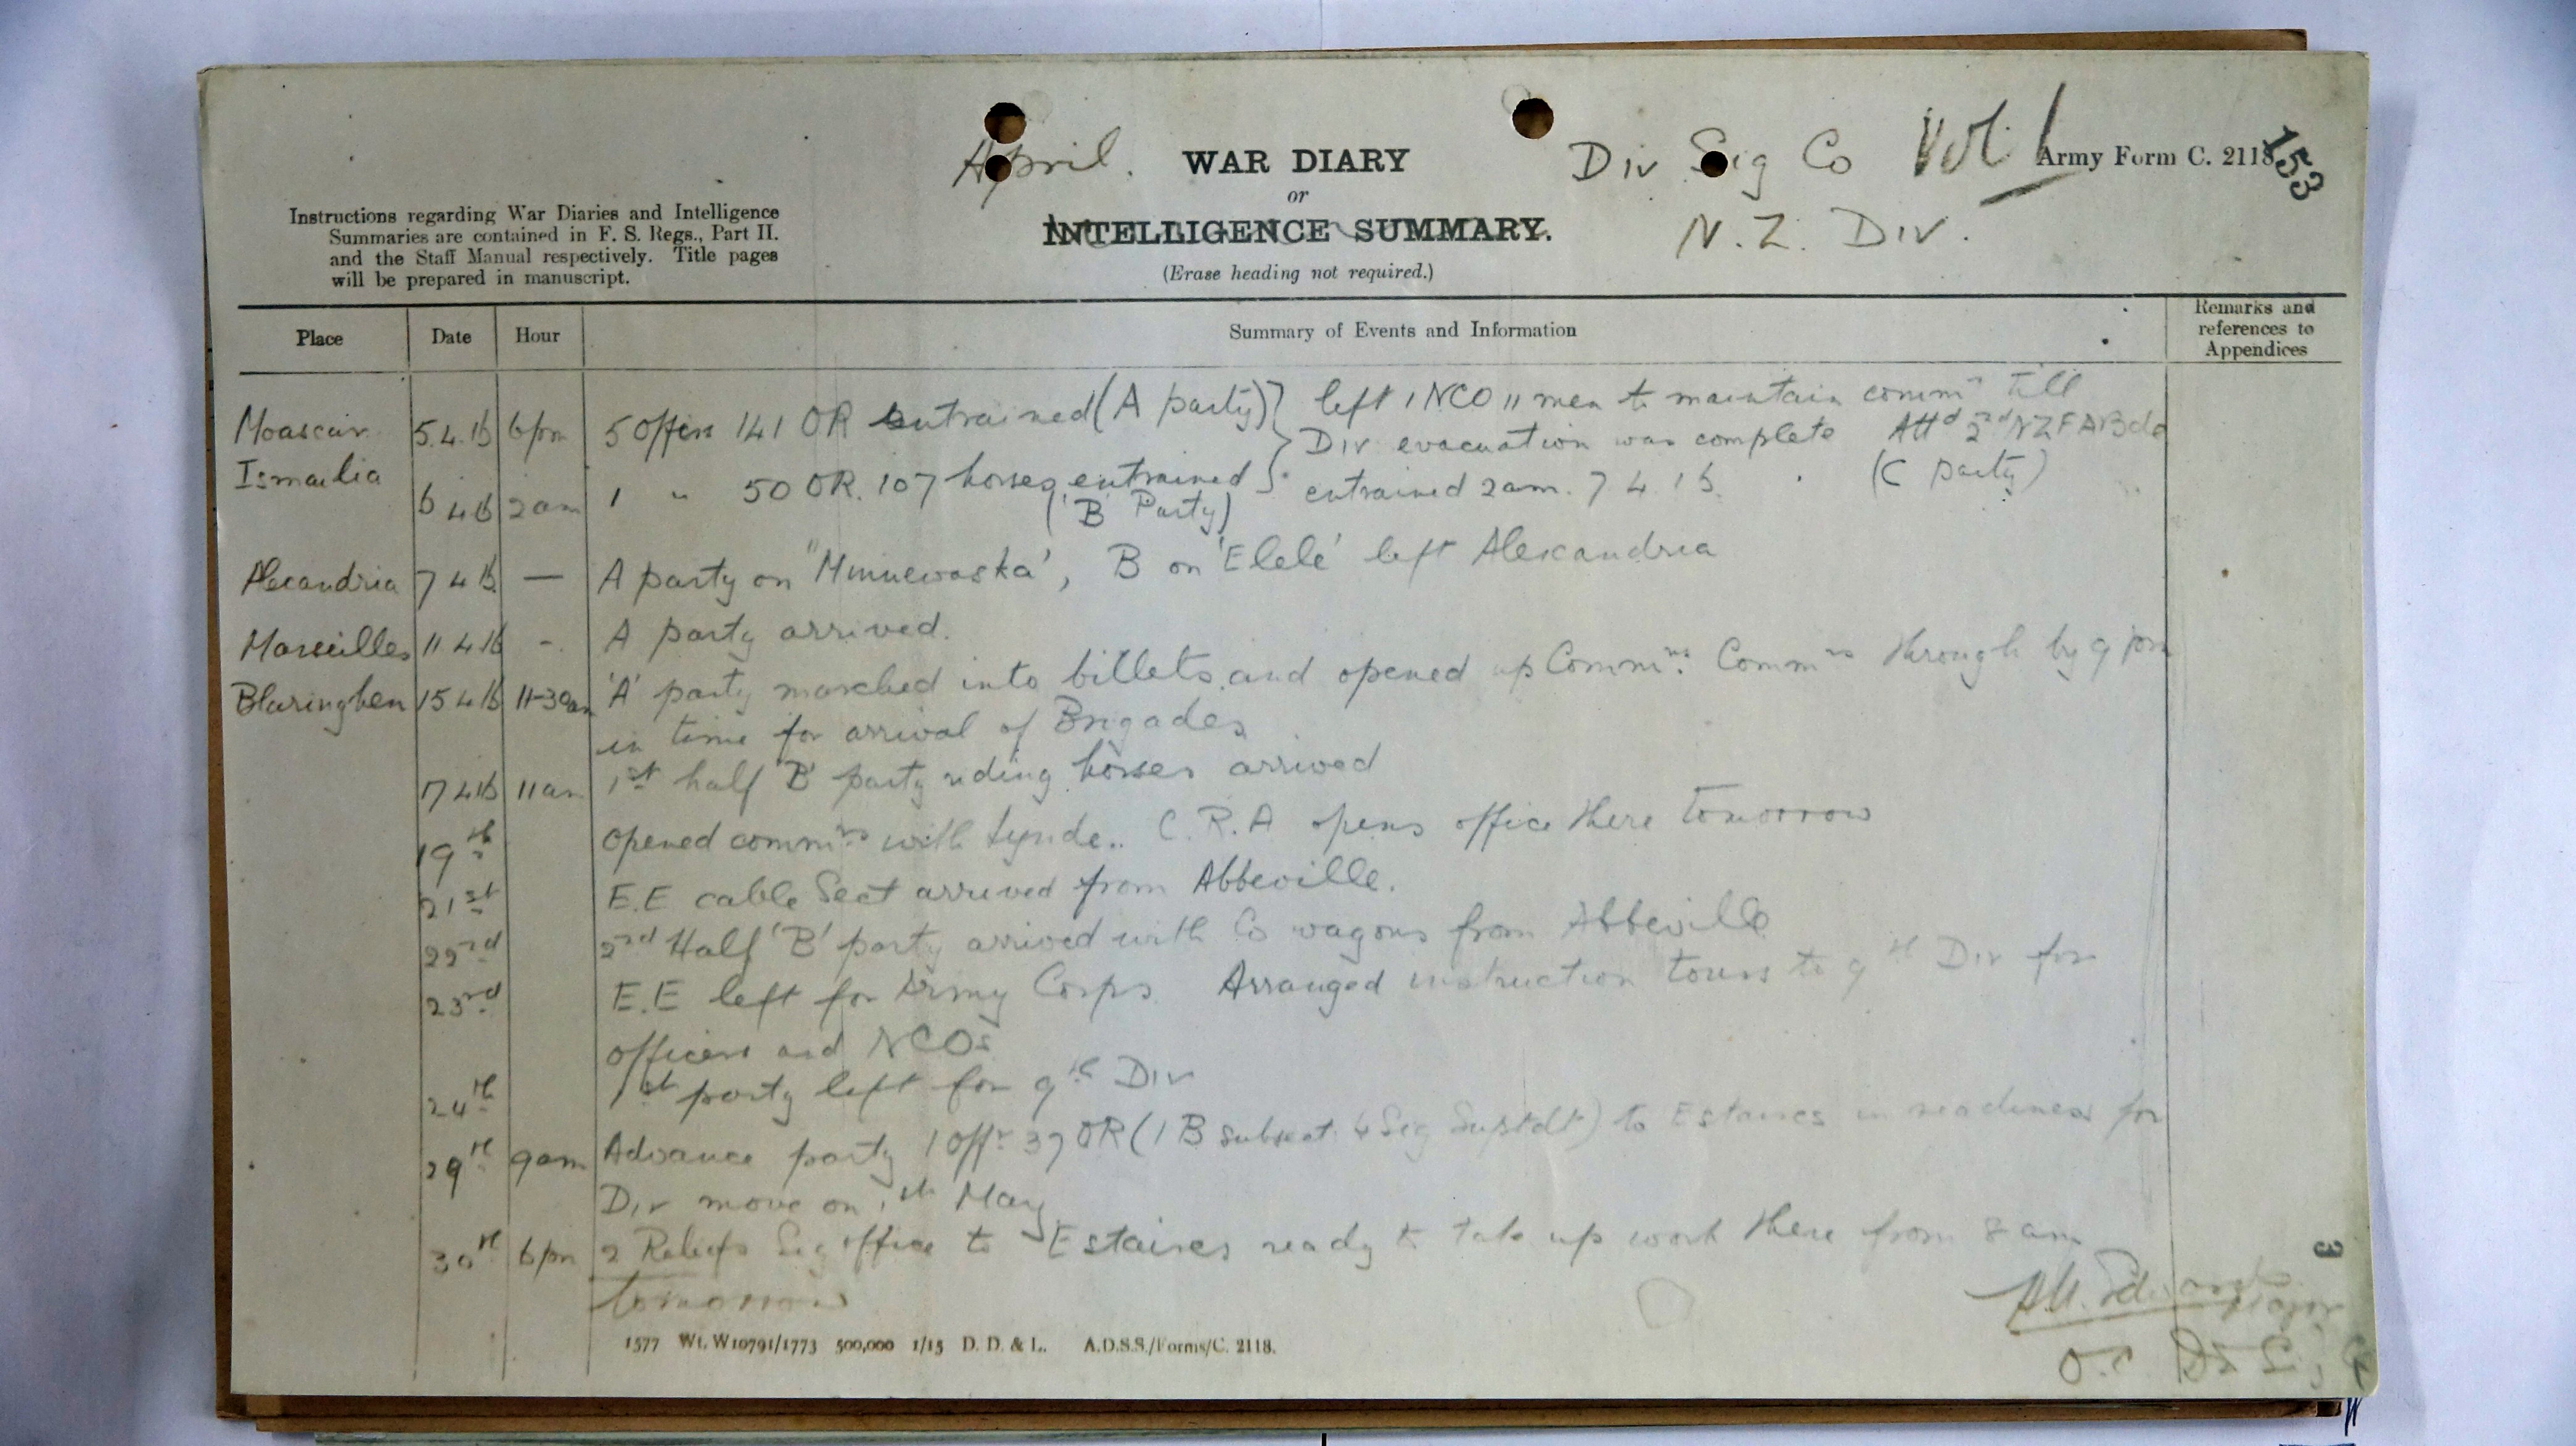 April. WAR DIARY Div Sig Co Vol 1 Army Form C. 2118
153
or
INTELLIGENCE SUMMARY. N. Z. Div.
(Erase heading not required.)
Instructions regarding War Diaries and Intelligence
Summaries are contained in F. S. Regs., Part II.
and the Staff Manual respectively. Title pages
will be prepared in manuscript.
Place Date Hour Summary of Events and Information Remarks and references to Appendices
Moascar 5.4.16 6pm 5 Offcrs 141 OR entrained (A party) } left 1 NCO 11 men to maintain commn till
Div evacuation was complete Attd 2nd NZFABde
Ismailia 6 4 16 2am 1 " 50 OR. 107 horses entrained } entrained 2am. 7 4 16. (C party)
('B' Party)
Alexandria 7 4 16 — A party on "Minnewaska', B on 'Elele' left Alexandria
Marseilles 11 4 16 - A party arrived.
Blaringhen 15 4 16 11-30am 'A' party marched into billets and opened up Commns. Commns through by 9 pm
in time for arrival of Brigades
17 4 16 11am 1st half 'B' party riding horses arrived
19th Opened commns with Lynde.. C.R.A opens office there tomorrow
21st E.E cable Sect arrived from Abbeville.
22nd 2nd Half 'B' party arrived with Co wagons from Abbeville
23rd E.E left for Army Corps Arranged instruction tours to 9th Div for
officers and NCOs
24th 1st party left for 9th Div
29th 9am Advance party 1 Offr 37 OR (1 B subsect & Sig Suptdt) to Estaires in readiness for
Div move on 1st May
30th 6pm 2 Reliefs Sig office to Estaires ready to take up work there from 8 am
tomorrow
Major
O.C. Div Sig
3
1577 Wt. W10791/1773 500,000 1/15 D. D. & L. A.D.S.S./Forms/C. 2118.